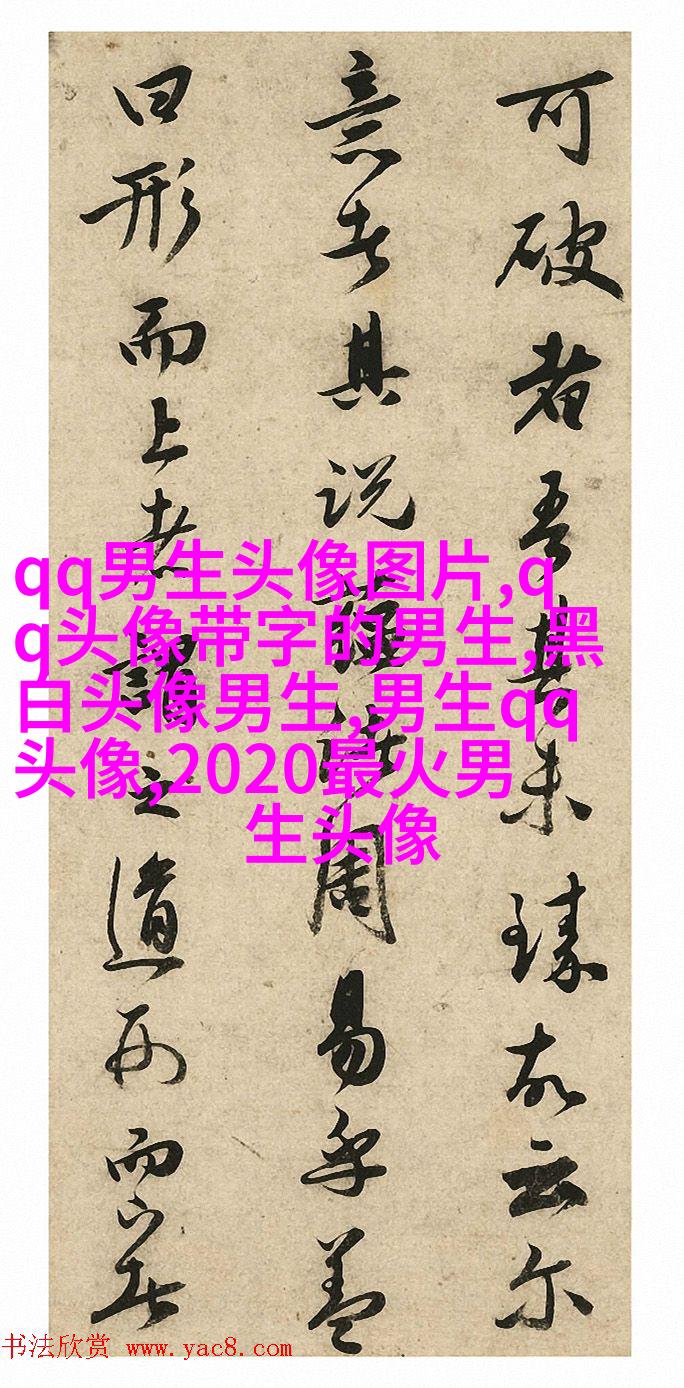 可破者吾未臻故云尔
意者其说周易乎盖
曰形而上者謂之道形而下者
qq男生头像图片,q
q头像带字的男生,黑
白头像男生,男生qq
头像,2020最火男
生头像
书法欣赏 www.yac8.com